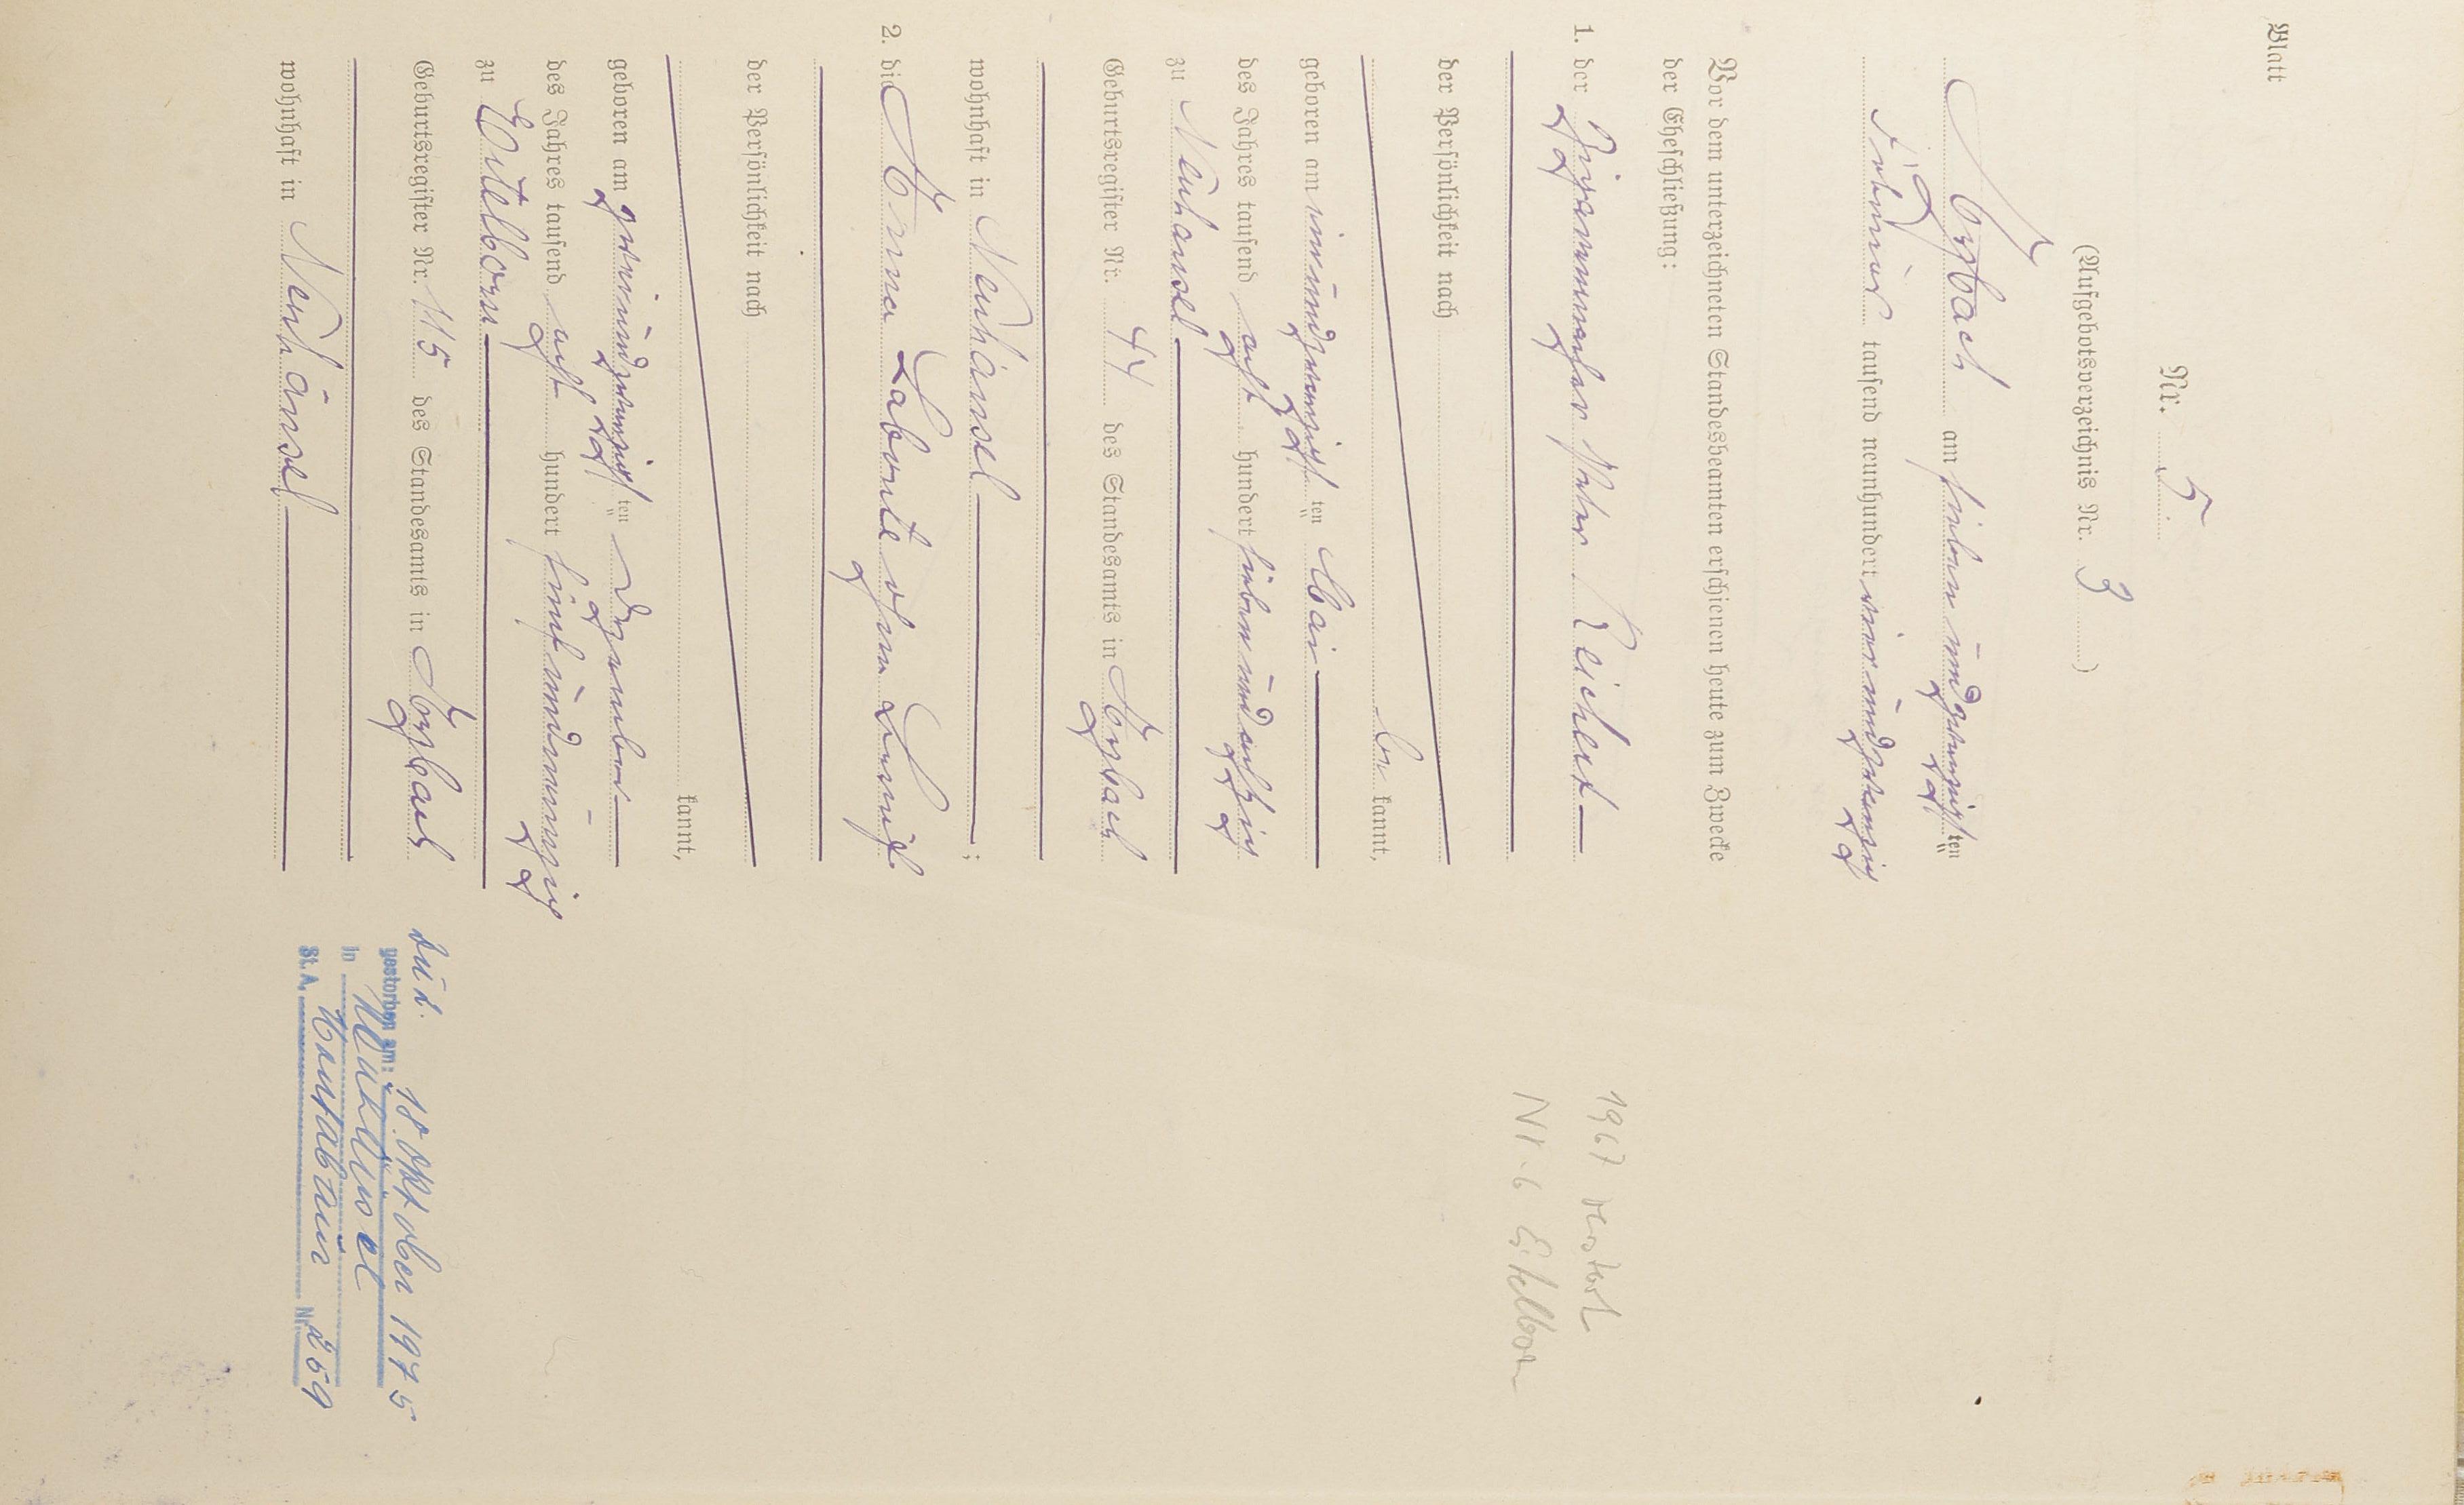 Blatt
Nr. 5.
(Aufgebotsverzeichnis Nr. 3)
Arzbach am sieben und zwanzigsten
Februar tausend neunhundert vier und zwanzig
Vor dem unterzeichneten Standesbeamten erschienen heute zum Zwecke
der Eheschließung:
1. der Peter Reichert
der Persönlichkeit nach
be kannt,
geboren am und zwanzigsten Mai
des Jahres tausend acht hundert sieben und achtzig
zu Neuhäusel
Geburtsregister Nr. 44 des Standesamts in Arzbach
wohnhaft in Neuhäusel ;
2. die Anna Labonte ohne
der Persönlichkeit nach
kannt,
geboren am zwei und zwanzigsten Dezember
des Jahres tausend acht hundert fünf und neunzig
zu Eitelborn
Geburtsregister Nr. 115 des Standesamts in Arzbach
wohnhaft in Neuhäusel
1967 verst.
Nr. 6 Eitelborn
zu 2.
gestorben am: 18. Oktober 1975
in Neuhäusel
St. A. Montabaur Nr. 259